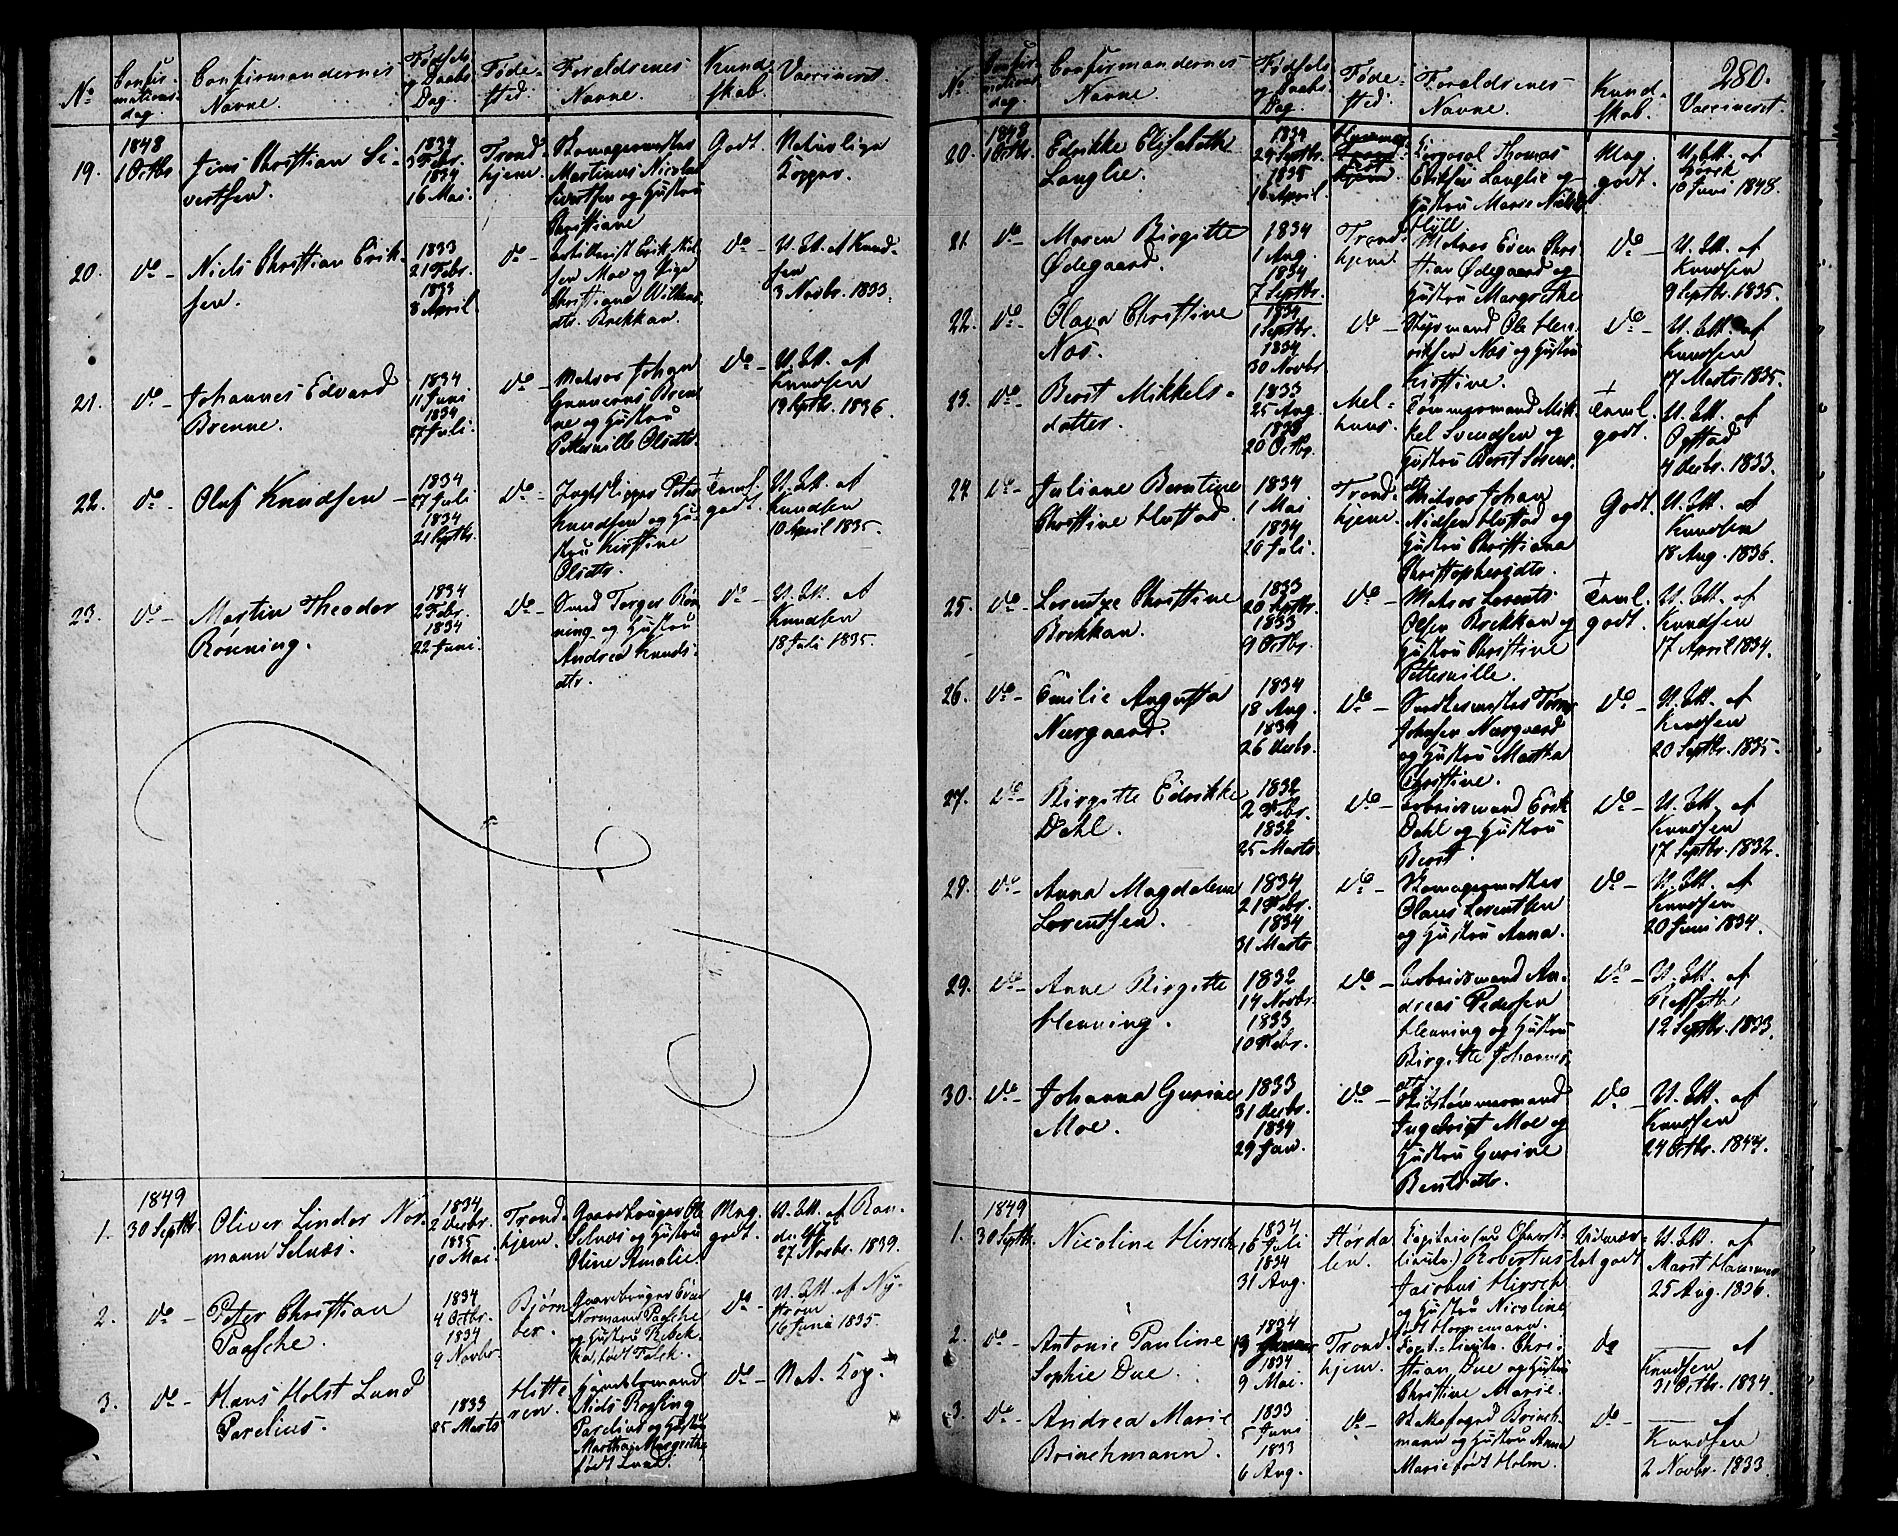 No
Confir-
mations-
dag.
Confirmandernes
Navne.
Fødsels
og Daabs
Dag.
Føde-
sted.
Forældrenes
Navne.
Kund-
skab.
Vaccineret.
19.
1848
1 Octbr
Jens Christian Si-
vertsen.
1834
3 Febr.
1834
16 Mai.
Trond-
hjem.
Skomagermester
Martinus Nicolai
Sivertsen og Hustru
Christiane
Godt.
Naturlige
Kopper.
20.
do –
Niels Christian Erik-
sen.
1833
21 Febr.
1833
8 April.
do –
Artillerist Erik Niel-
sen Moe og Pige
Christiana Wilkens-
dtr. Brekkan.
do –
U. Att. af Knud-
sen
3 Novbr. 1833.
21.
do –
Johannes Edvard
Brenne.
1834
11 Juni
1834
27 Juli.
do –
Matros Johan
Gunnerus Bren-
ne og Hustru
Petternille Olsdtr.
do –
U. Att. af
Knudsen
19 Septbr. 1836.
22.
do –
Oluf Knudsen –
1834
27 Juli
1834
21 Septbr.
do –
Jagtskipper Peter
Knudsen og Hu-
stru Kirstine
Olsdtr.
Teml.
godt.
U. Att. af
Knudsen
10 April 1835.
23.
do –
Martin Theodor
Rønning.
1834
2 Febr.
1834
22 Juni.
do –
Smed Torger Røn-
ning og Hustru
Andrea Knuds-
dtr.
do –
U. Att. af
Knudsen
18 Juli 1835.
1.
1849
30 Septbr.
Oliver Lindor Nor-
mann Selnæs.
1834
2 Decbr.
1835
10 Mai.
Trond-
hjem.
Gaardbruger Ole
Selnæs og Hustru
Oline Amalie.
Meg.
godt.
U. Att. af
27 Novbr. 1839.
2.
do –
Peter Christian
Paasche.
1834
4 Octbr.
1834
9 Novbr.
Bjørn-
ør.
Gaardbruger
Normann Paasche
og Hustru Rebek-
ka, født Falck.
do –
U. Att. af Ny-
strøm
16 Juni 1835.
3.
do –
Hans Holst Lund
Parelius.
1833
25 Marts
Hitte-
ren.
Handelsmand
Niels
Parelius og Hustru
Martha Margrethe
født Lund.
do –
Nat. Kop.
280.
No
Confir-
mations-
dag.
Confirmandernes
Navne.
Fødsels
og Daabs
Dag.
Føde-
sted.
Forældrenes
Navne.
Kund-
skab.
Vaccineret.
20.
1848
1 Octbr.
Edrikke Elisabeth
Langlie.
1834
29 Septbr.
1835
16 April.
Corporal Thomas
Eriksen Langlie og
Hustru Maren Niels-
Meg.
godt.
U. Att. af
10 Juni 1848.
21.
do –
Maren Birgitte
Ødegaard.
1834
1 Aug.
1834
7 Septbr.
Trond-
hjem.
Matros Eden Chri-
stian Ødegaard og
Hustru Margrethe
do –
U. Att. af
Knudsen
9 Septbr. 1835.
22.
do –
Olava Christine
Næs.
1834
1 Septbr.
1834
30 Novbr
do –
Styrmand Ole Hen-
riksen Næs og Hustru
Kirstine.
do –
U. Att. af
Knudsen
17 Marts 1835.
23.
do –
Berit Mikkels-
datter.
1833
25 Aug.
1833
20 Octbr.
Mel-
huus.
Tømmermand Mik-
kel Svendsen og
Hustru Berit Sivers-
dtr.
Teml.
godt.
U. Att. af
Opstad
4 Decbr. 1833.
24.
do –
Juliane Berntine
Christine Hustad.
1834
1 Mai
1834
20 Juli.
Trond-
hjem.
Matros Johan
Nielsen Hustad og
Hustru Christiana
Christophersdtr.
Godt.
U. Att. af
Knudsen
18 Aug. 1836.
25.
do –
Lorentze Christine
Brekkan.
1833
20 Septbr.
1833
9 Octbr.
do –
Matros Lorents
Olsen Brekkan og
Hustru Christine
Petternille.
Teml.
godt.
U. Att. af
Knudsen
17 April 1834.
26.
do –
Emilie Augusta
Neergaard.
1834
18 Aug.
1834
26 Decbr.
do –
Snedkermester
Johnsen Neergaard
og Hustru Martha
Christine.
do –
U. Att. af
Knudsen
20 Septbr. 1835.
27.
do –
Birgitte Edrikke
Dahl.
1832
2 Febr.
1832
25 Marts.
do –
Arbeidsmand Erik
Dahl og Hustru
Berit.
do –
U. Att. af
Knudsen
17 Septbr. 1832.
28.
do –
Anna Magdalena
Lorentsen.
1834
21 Febr.
1834
31 Marts
do –
Skomagermester
Olaus Lorentsen
og Hustru Anna.
do –
U. Att. af
Knudsen
20 Juni 1834.
29.
do –
Anne Birgitte
Henning.
1832
14 Novbr.
1833
10 Febr.
do –
Arbeidsmand An-
dreas Pedersen
Henning og Hustru
Birgitte Johannes-
dtr.
do –
U. Att. af
12 Septbr. 1833.
30.
do –
Johanna Gurine
Moe.
1833
31 Decbr.
1834
29 Jan.
do –
Skibstømmermand
Ingebrigt Moe og
Hustru Gurine
Bentsdtr.
do –
U. Att. af
Knudsen
24 Octbr. 1844.
1.
1849
30 Septbr.
Nicoline Hirsch
1834
16 Juli
1834
31 Aug.
Størda-
len.
Capitain (nu Oberst-
lieutn.) Robertus
Jacobus Hirsch
og Hustru Nicoline
født Hornemann.
Udmær-
ket godt.
U. Att. af
25 Aug. 1836.
2.
do –
Antonie Pauline
Sophie Due.
1834
13
1834
9 Mai.
Trond-
hjem.
Chri-
stian Due og Hustru
Christine Marie.
do
af
Knudsen
31 Octbr. 1834.
3.
do –
Andrea Marie
Brinchmann.
1833
5 Juni
1833
6 Aug.
do –
Stadsfoged Brinch-
mann og Hustru Anna
Marie født Holm.
do –
af
Knudsen
2 Novbr. 1833.